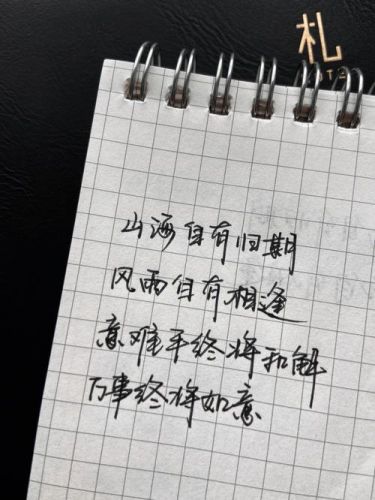 札
山海自有归期
风雨自有相逢
意难平终将和解
万事终将如意